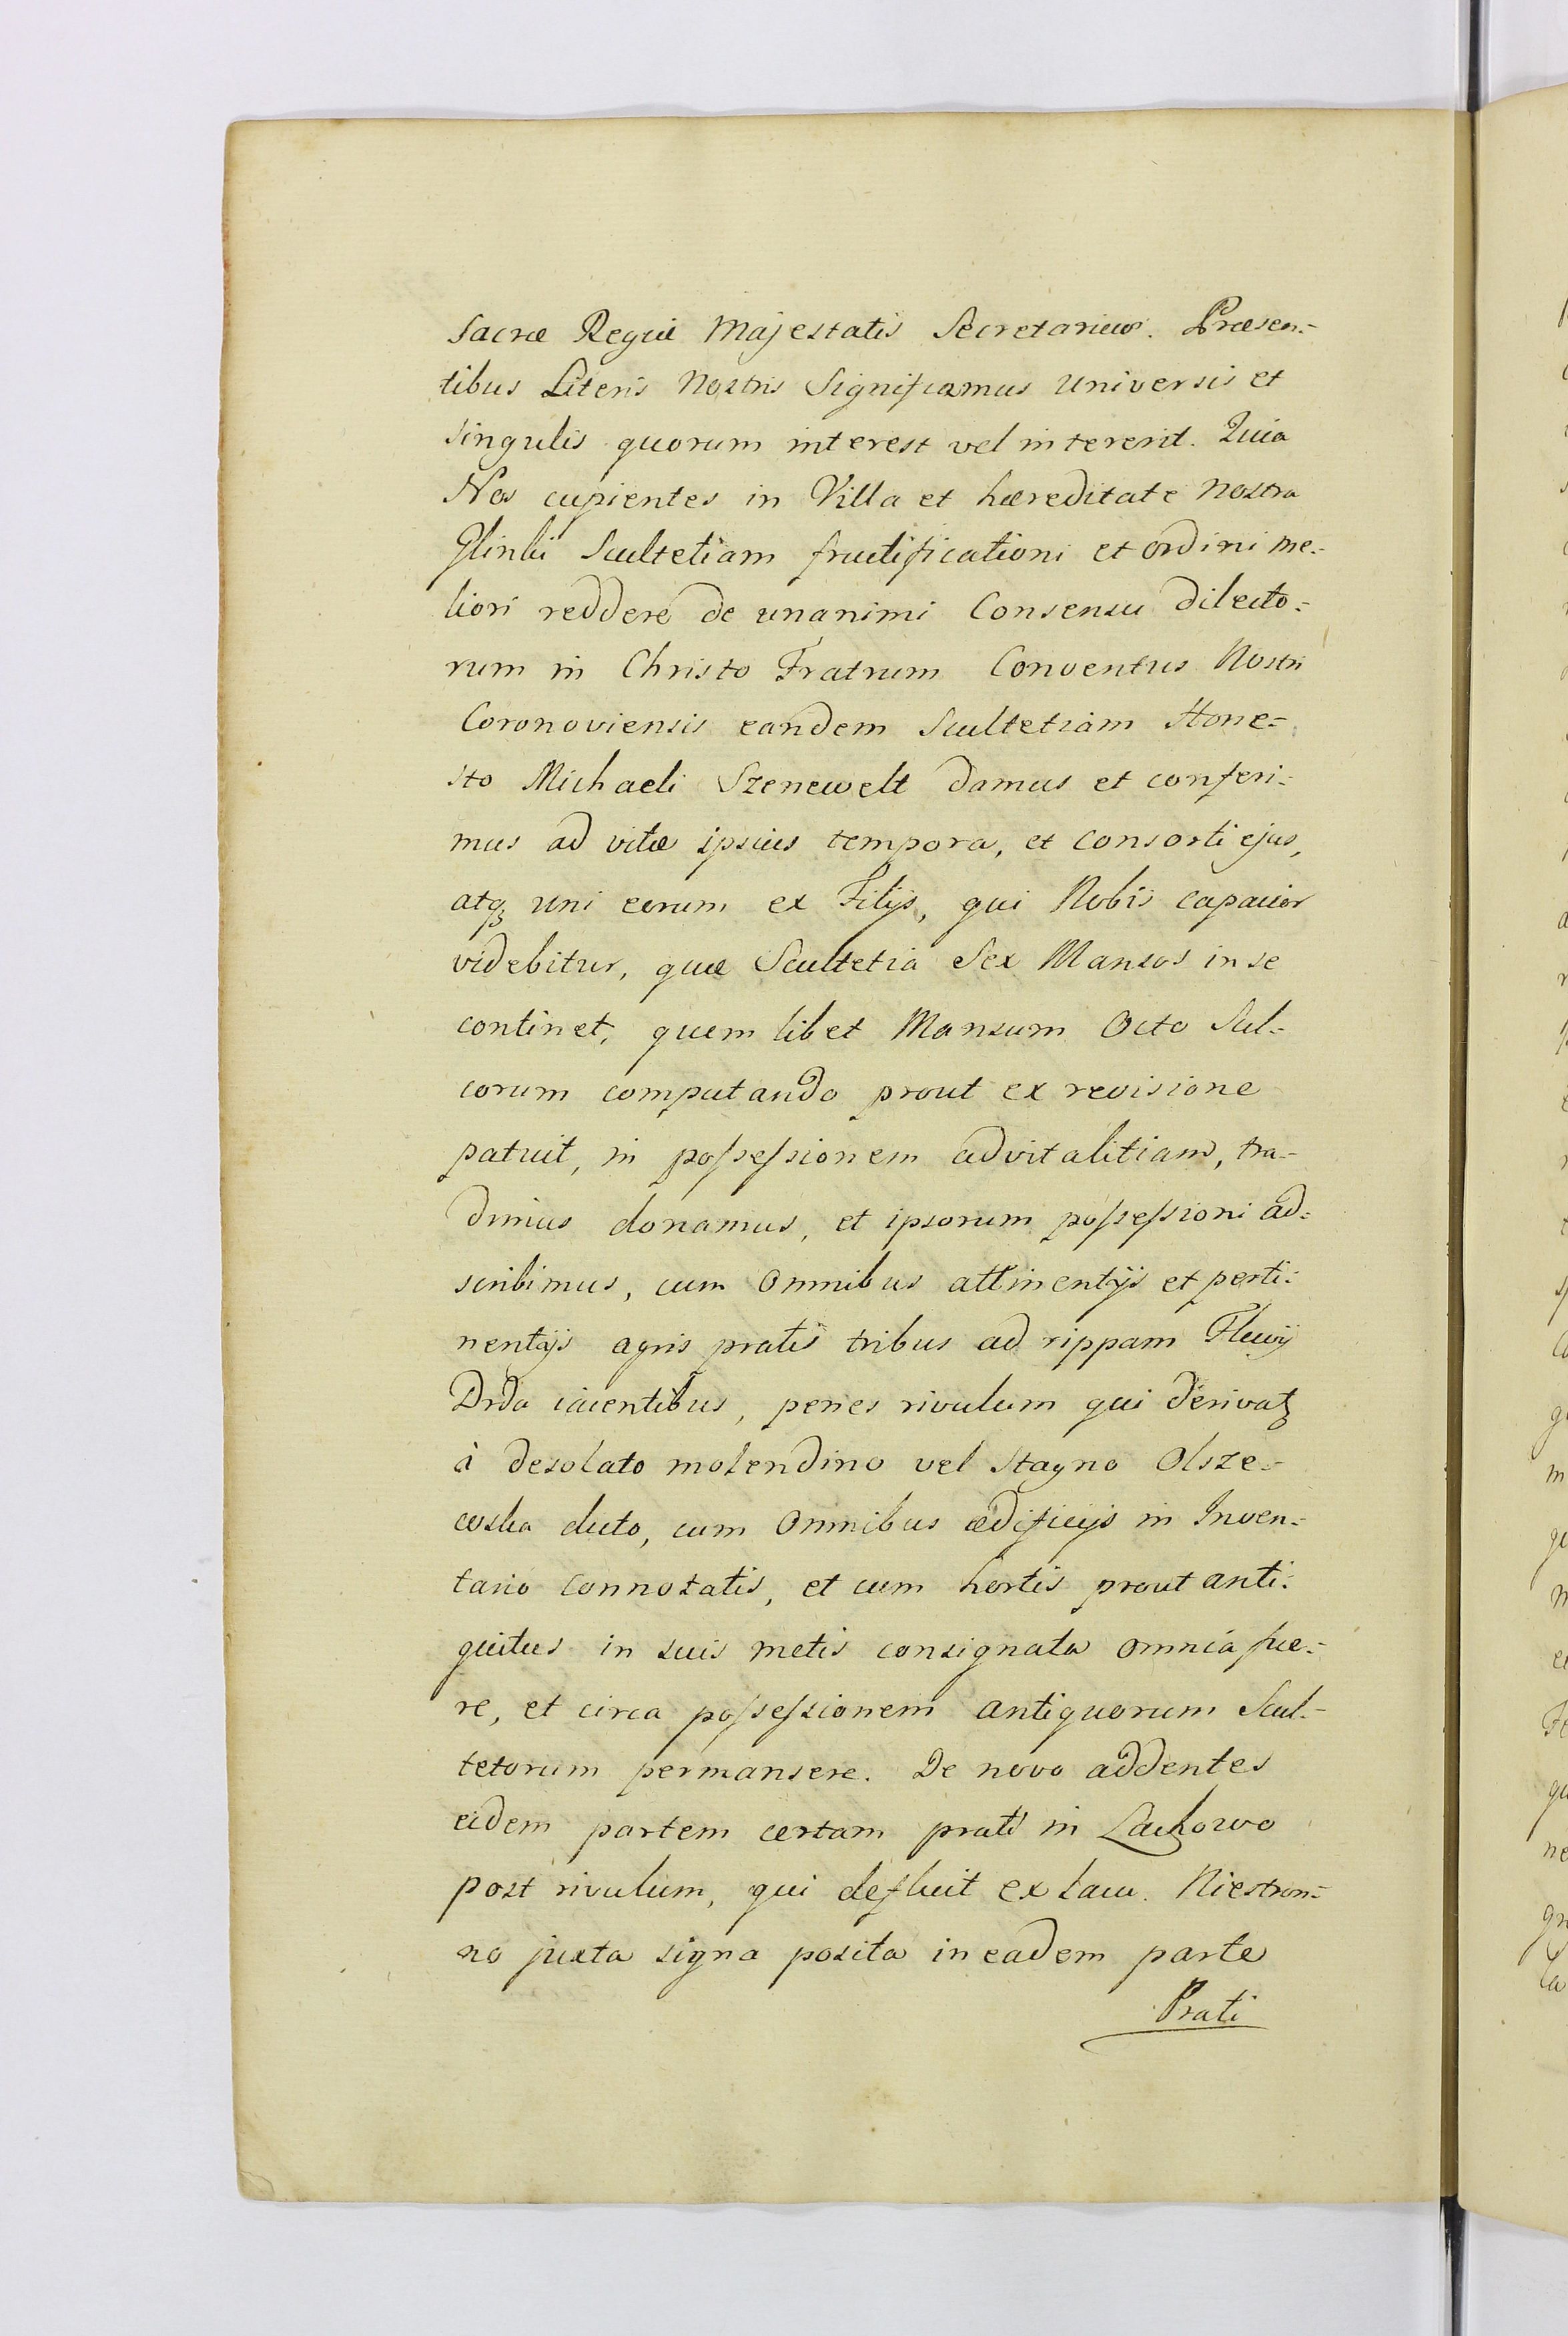 Sacræ Regiæ Majestatis Secretarius. Præsen=
tibus Literis Nostris Significamus Universis et
singulis quorum interest vel intererit. Quia
Nos cupientes in Villa et hæreditate nostra
Glinki Scultetiam fructificationi et ordini me=
liori reddere de unanimi Consensu dilecto=
rum in Christo Fratrum Conventus Nostri
Coronoviensis eandem Scultetiam Hone=
sto Michaeli Szenewelt damus et conferi=
mus ad vitæ ipsius tempora, et consorti ejus,
atq₃ uni eorum ex Filijs, qui Nobis capacior
videbitur, quæ Scultetia Sex Mansos in se
continet, quem libet Mansum Octo Sul=
corum computando prout ex revisione
patuit, in possessionem advitalitiam, tra=
dimus donamus, et ipsorum possessioni ad=
scribimus, cum Omnibus attinentijs et perti=
nentijs agris pratis tribus ad rippam Fluvij
Drda iacentibus, penes rivulum qui derivat₃
à desolato molendino vel Stagno Olsze=
wska dicto, cum Omnibus ædificijs in Inven=
tario connotatis, et cum hortis prout anti=
quitus in suis metis consignata omnia fue=
re, et circa possessionem antiquorum Scul=
tetorum permansere. De novo addentes
eidem partem certam prati in Lachowo
post rivulum, qui defluit ex lacu. Niestron=
no juxta signa posita in eadem parte
Prati